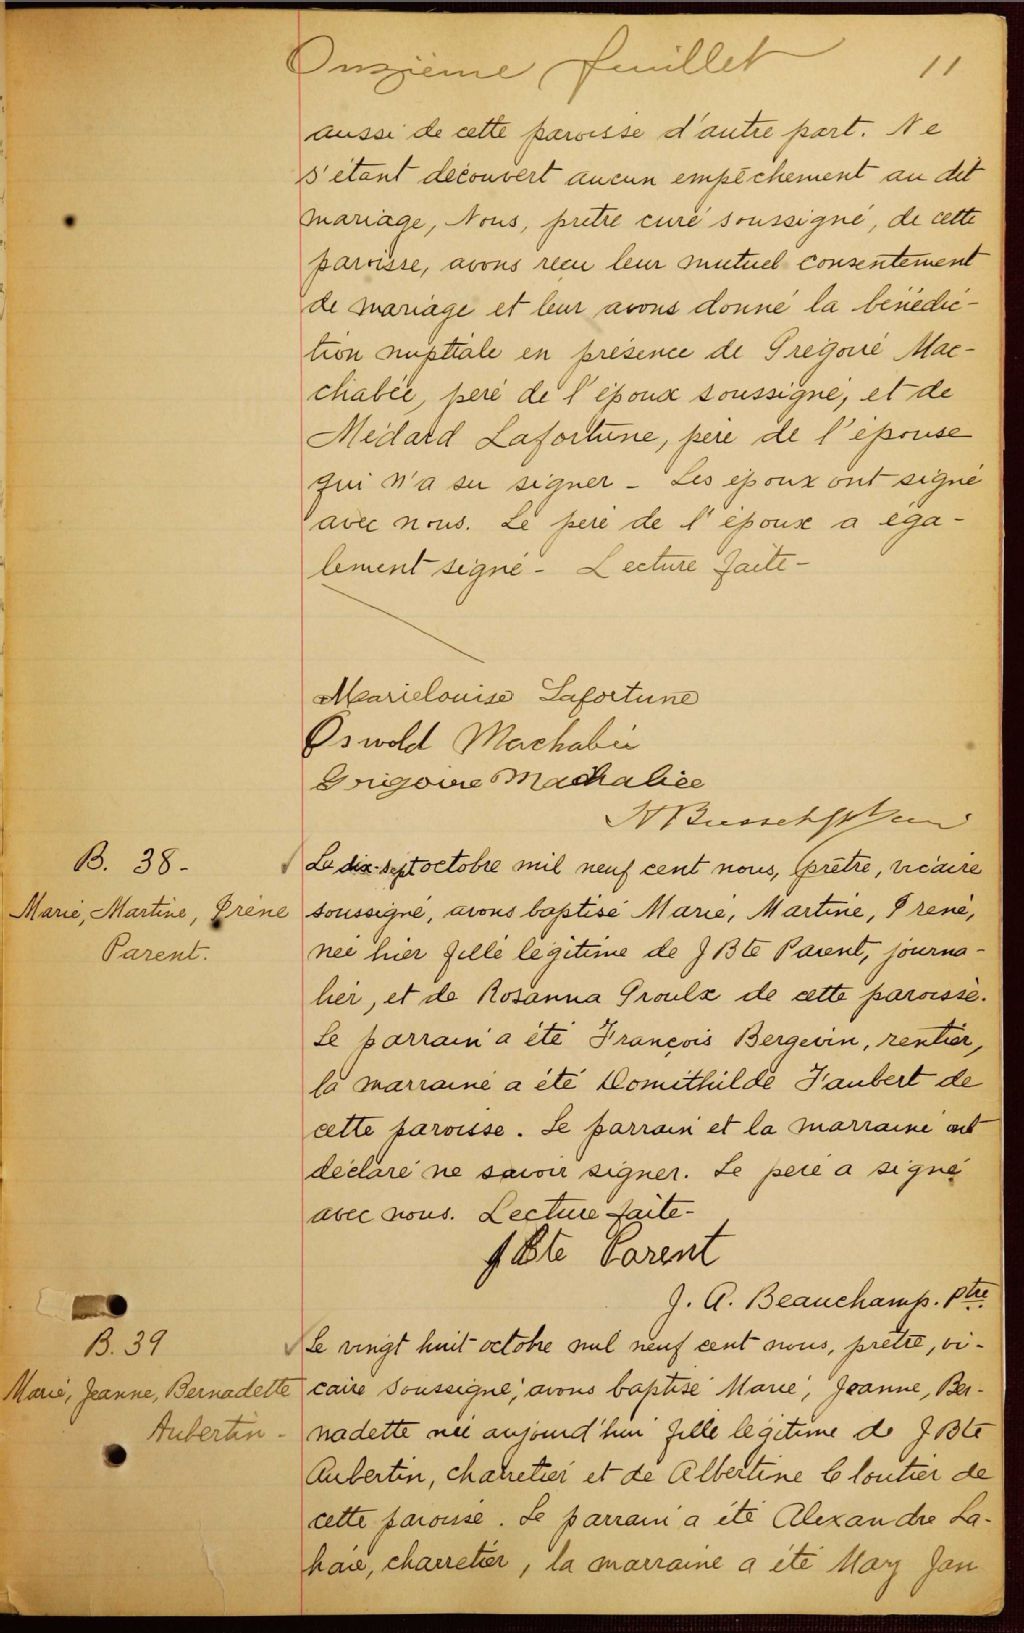 Onzième feuillet 11
aussi de cette paroisse d'autre part. Ne
s'étant découvert aucun empêchement au dit
mariage, Nous, prêtre curé soussigné, de cette
paroisse, avons reçu leur mutuel consentement
de mariage et leur avons donné la bénédic-
tion nuptiale en présence de Grégoire Mac-
chabée, père de l'époux soussigné, et de
Médard Lafortune, père de l'épouse
qui n'a su signer - Les époux ont signé
avec nous. Le père de l'époux a éga-
lement signé - Lecture faite -
Marielouise Lafortune
Oswold Machabée
Grégoire Machabée
B. 38 -
Marie, Martine, Irène
Parent.
Le dix-sept octobre mil neuf cent nous, prêtre, vicaire
soussigné, avons baptisé Marie, Martine, Irène,
née hier fille légitime de J Bte Parent, journa-
lier, et de Rosanna Proulx de cette paroisse.
Le parrain a été François Bergevin, rentier,
la marraine a été Domithilde Faubert de
cette paroisse. Le parrain et la marraine ont
déclaré ne savoir signer. Le père a signé
avec nous. Lecture faite -
J Bte Parent
J. A. Beauchamp. Ptre
B. 39
Marie, Jeanne, Bernadette
Aubertin -
Le vingt huit octobre mil neuf cent nous, prêtre, vi-
caire soussigné, avons baptisé Marie, Jeanne, Ber-
nadette née aujourd'hui fille légitime de J Bte
Aubertin, charretier et de Albertine Cloutier de
cette paroisse. Le parrain a été Alexandre La-
haie, charretier, la marraine a été Mary Jan